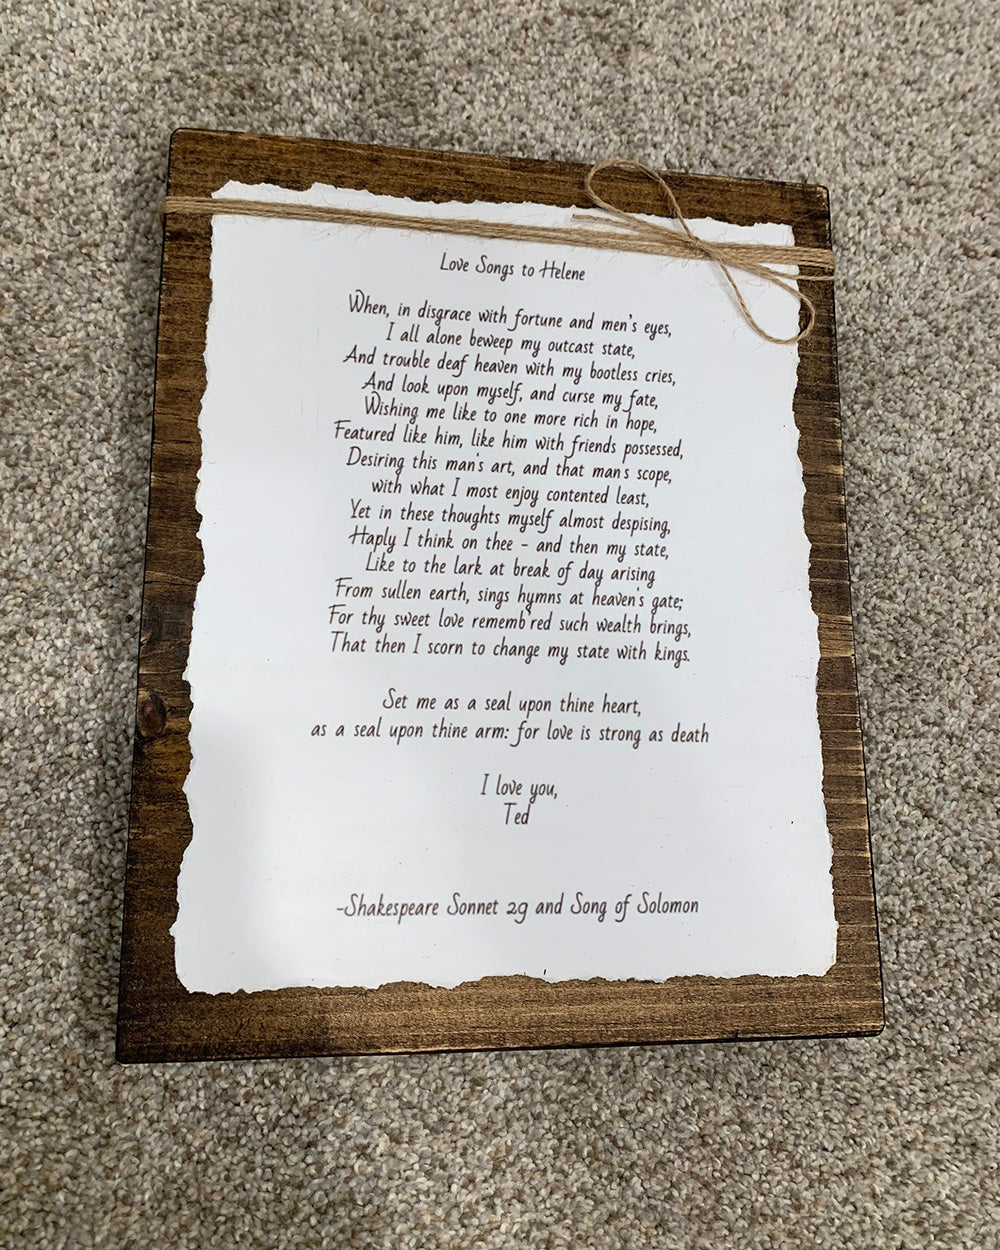 Love Songs to Helene
When, in disgrace with fortune and men's eyes,
I all alone beweep my outcast state,
And trouble deaf heaven with my bootless cries,
And look upon myself, and curse my fate,
Wishing me like to one more rich in hope,
Featured like him, like him with friends possessed,
Desiring this man's art, and that man's scope,
with what I most enjoy contented least,
Yet in these thoughts myself almost despising,
Haply I think on thee - and then my state,
Like to the lark at break of day arising
From sullen earth, sings hymns at heaven's gate;
For thy sweet love rememb'red such wealth brings,
That then I scorn to change my state with kings.
Set me as a seal upon thine heart,
as a seal upon thine arm: for love is strong as death
I love you,
Ted
-Shakespeare Sonnet 29 and Song of Solomon